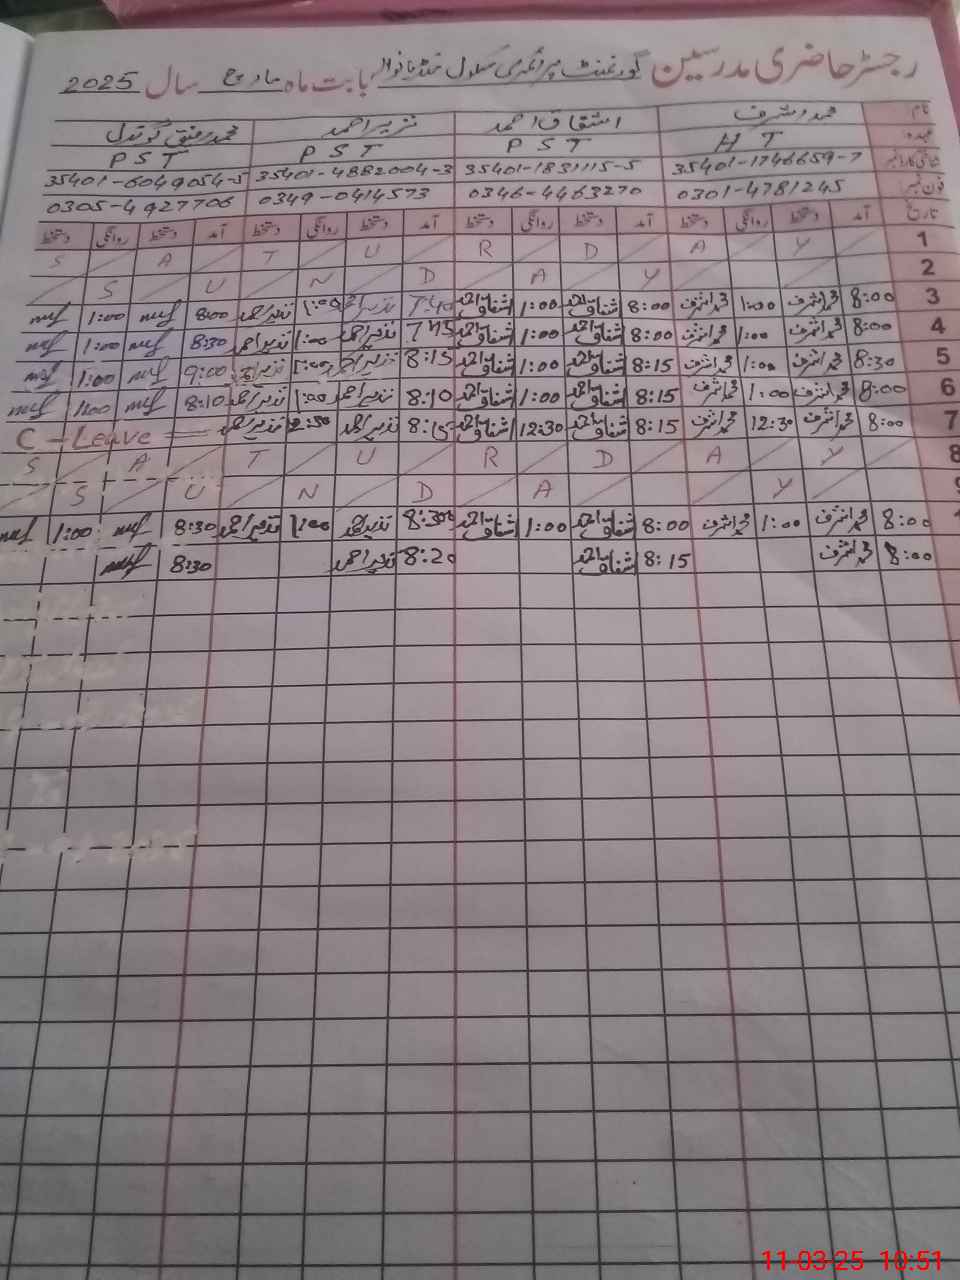 رجسٹر حاضری مدرسین گورنمنٹ پرائمری سکول بابت ماہ مارچ سال 2025
نام محمد اشرف اشتفاق احمد نزیر احمد محمد رفیق گوندل
عہدہ H T P S T P S T P S T
35401-1746659-7 35401-1831115-5 35401-4882004-3 35401-6049054-5
فون نمبر 0301-4781245 0346-4463270 0349-0414573 0305-4927706
تاریخ آمد دستخط روانگی دستخط آمد دستخط روانگی دستخط آمد دستخط روانگی دستخط آمد دستخط روانگی دستخط
1 S A T U R D A Y
2 S U N D A Y
3 8:00 محمد اشرف 1:00 محمد اشرف 8:00 اشفاق احمد 1:00 اشفاق احمد 7:40 نذیر احمد 1:00 نذیر احمد 8:00 1:00
4 8:00 محمد اشرف 1:00 محمد اشرف 8:00 اشفاق احمد 1:00 اشفاق احمد 7:45 نذیر احمد 1:00 نذیر احمد 8:30 1:00
5 8:30 محمد اشرف 1:00 محمد اشرف 8:15 اشفاق احمد 1:00 اشفاق احمد 8:15 نذیر احمد 1:00 نذیر احمد 9:00 1:00
6 8:00 محمد اشرف 1:00 محمد اشرف 8:15 اشفاق احمد 1:00 اشفاق احمد 8:10 نذیر احمد 1:00 نذیر احمد 8:10 1:00
7 8:00 محمد اشرف 12:30 محمد اشرف 8:15 اشفاق احمد 12:30 اشفاق احمد 8:15 نذیر احمد نذیر احمد C-Leave
8 S A T U R D A Y
9 S U N D A Y
8:00 محمد اشرف 1:00 محمد اشرف 8:00 اشفاق احمد 1:00 اشفاق احمد 8:30 نذیر احمد 1:00 نذیر احمد 8:30 1:00
8:00 محمد اشرف 8:15 اشفاق احمد 8:20 نذیر احمد 8:30
11-03-25 10:51